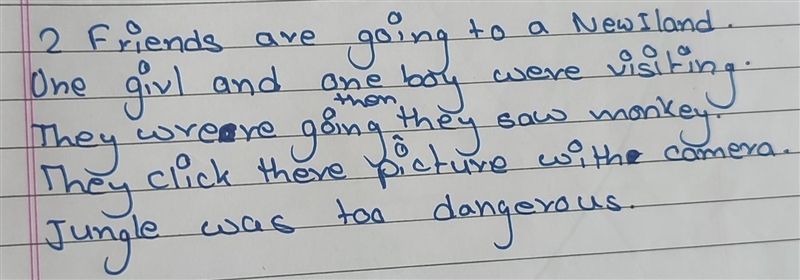 2 Friends are going to a New Iland.
One girl and one boy were visiting.
They wrere going then they saw monkey.
They click there picture with camera.
Jungle was too dangerous.